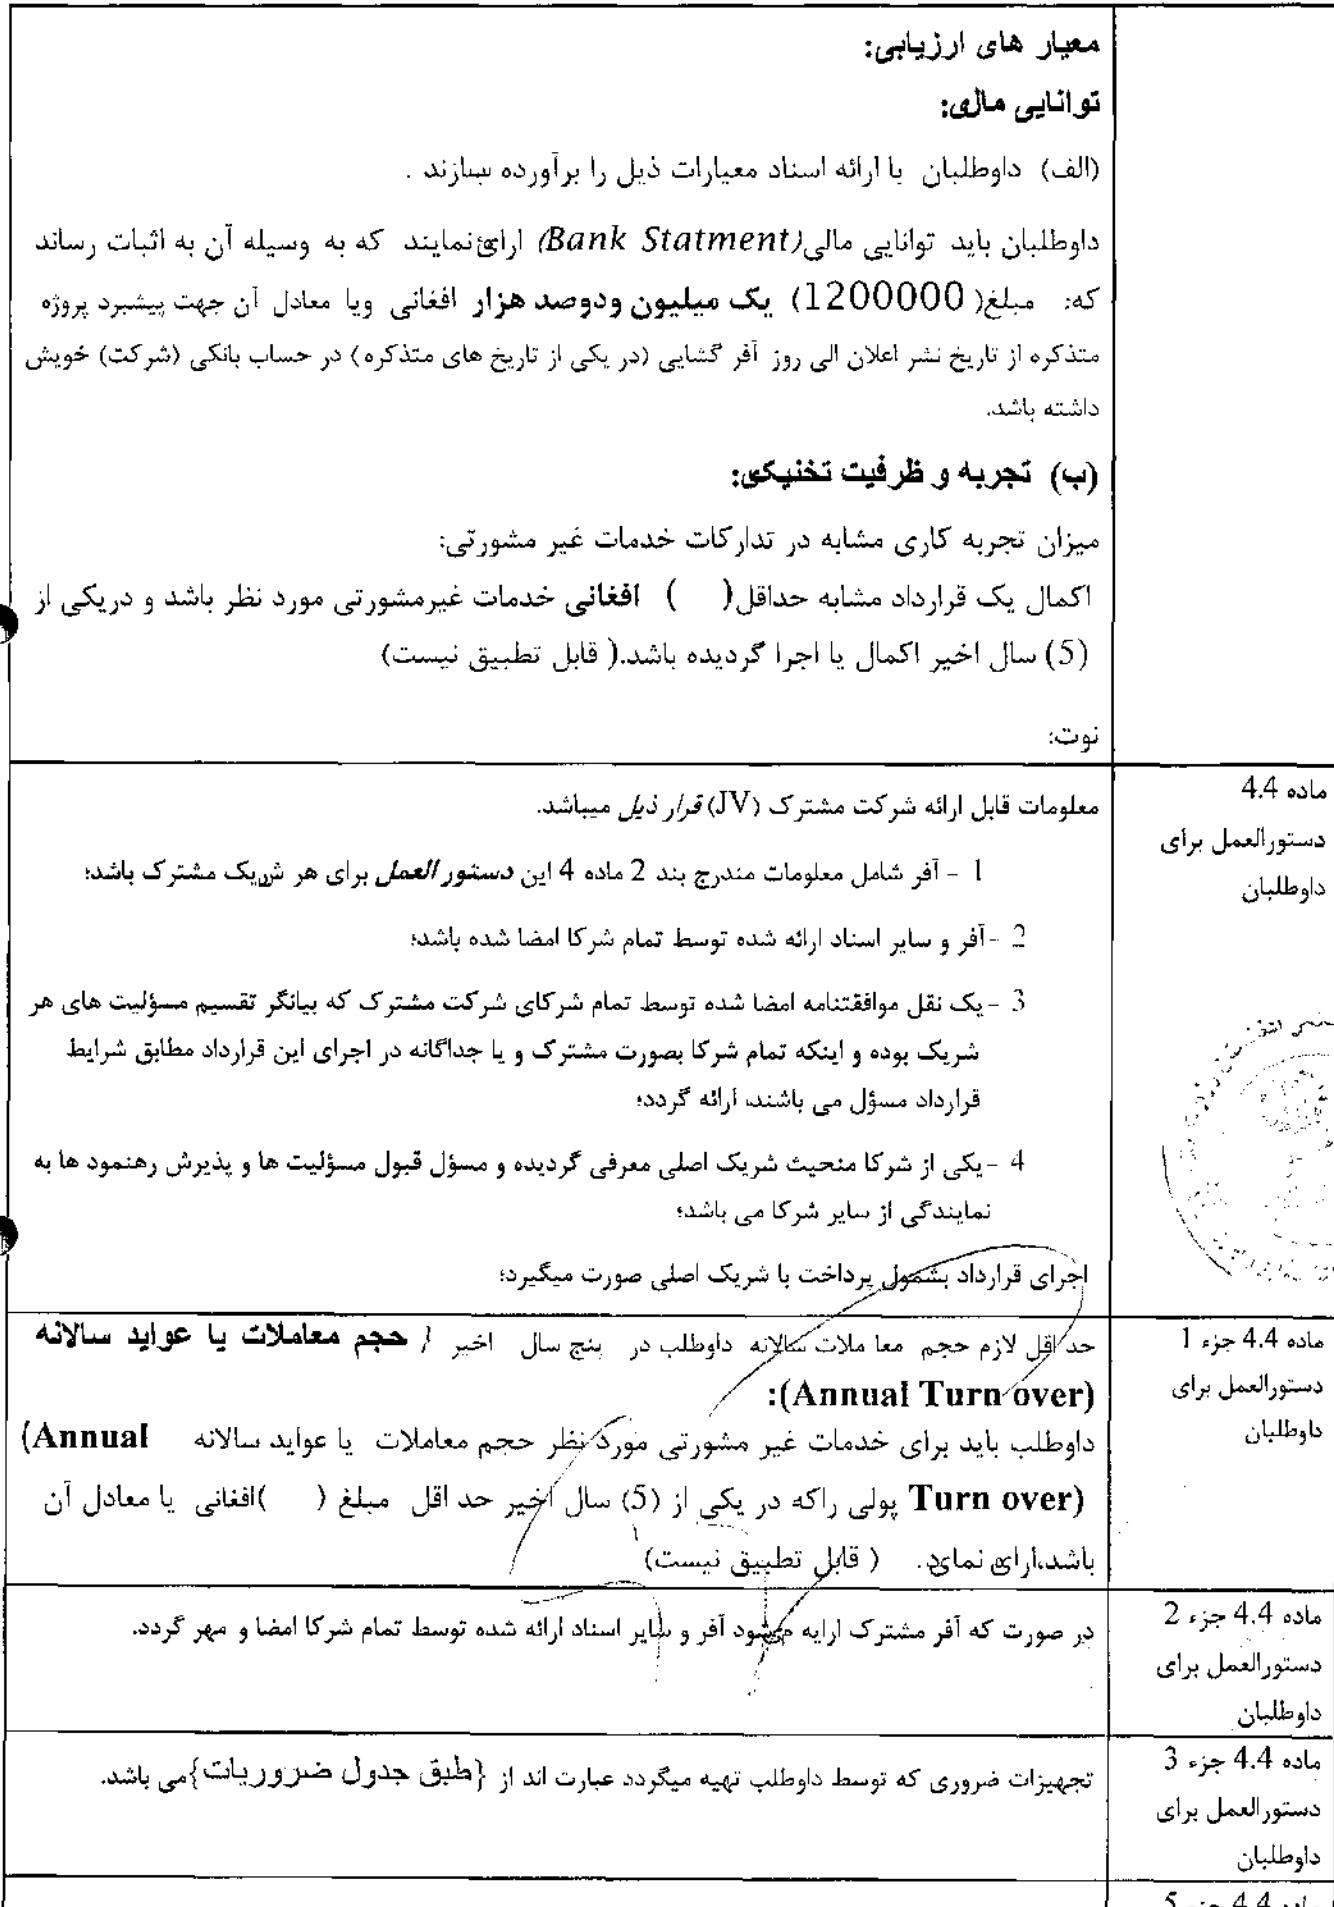 معیار های ارزیابی:
توانایی مالی:
(الف) داوطلبان با ارائه اسناد معیارات ذیل را برآورده سازند .
داوطلبان باید توانایی مالی(Bank Statment) ارائ نمایند که به وسیله آن به اثبات رساند
که: مبلغ( 1200000) یک میلیون ودوصد هزار افغانی ویا معادل آن جهت پیشبرد پروژه
متذکره از تاریخ نشر اعلان الی روز آفر گشایی (در یکی از تاریخ های متذکره) در حساب بانکی (شرکت) خویش
داشته باشد.
(ب) تجربه و ظرفیت تخنیکی:
میزان تجربه کاری مشابه در تدارکات خدمات غیر مشورتی:
اکمال یک قرارداد مشابه حداقل( ) افغانی خدمات غیرمشورتی مورد نظر باشد و دریکی از
(5) سال اخیر اکمال یا اجرا گردیده باشد.( قابل تطبیق نیست)
نوت:
ماده 4.4
دستورالعمل برای
داوطلبان
معلومات قابل ارائه شرکت مشترک (JV) قرار ذیل میباشد.
1 - آفر شامل معلومات مندرج بند 2 ماده 4 این دستور العمل برای هر شریک مشترک باشد؛
2 -آفر و سایر اسناد ارائه شده توسط تمام شرکا امضا شده باشد؛
3 -یک نقل موافقتنامه امضا شده توسط تمام شرکای شرکت مشترک که بیانگر تقسیم مسؤلیت های هر
شریک بوده و اینکه تمام شرکا بصورت مشترک و یا جداگانه در اجرای این قرارداد مطابق شرایط
قرارداد مسؤل می باشند، ارائه گردد؛
4 -یکی از شرکا منحیث شریک اصلی معرفی گردیده و مسؤل قبول مسؤلیت ها و پذیرش رهنمود ها به
نمایندگی از سایر شرکا می باشد؛
اجرای قرارداد بشمول پرداخت با شریک اصلی صورت میگیرد؛
ماده 4.4 جزء 1
دستورالعمل برای
داوطلبان
حد اقل لازم حجم معا ملات سالانه داوطلب در پنج سال اخیر { حجم معاملات یا عواید سالانه
(Annual Turn over):
داوطلب باید برای خدمات غیر مشورتی مورد نظر حجم معاملات یا عواید سالانه (Annual
Turn over) پولی راکه در یکی از (5) سال اخیر حد اقل مبلغ ( )افغانی یا معادل آن
باشد،ارای نمای. ( قابل تطبیق نیست)
ماده 4.4 جزء 2
دستورالعمل برای
داوطلبان
در صورت که آفر مشترک ارایه میشود آفر و سایر اسناد ارائه شده توسط تمام شرکا امضا و مهر گردد.
ماده 4.4 جزء 3
دستورالعمل برای
داوطلبان
تجهیزات ضروری که توسط داوطلب تهیه میگردد عبارت اند از {طبق جدول ضروریات}می باشد.
ماده 4.4 جزء 5